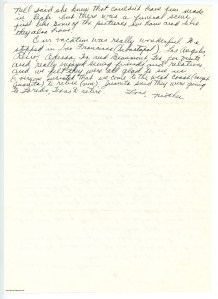 Tell said she knew that couldn't have been made
in            and there was a funeral scene,
just like some of the pictures we have and like
they also have.
Our vacation was really wonderful. We
stopped in San Francisco (Sebastopol), Los Angeles
Reno, Odessa, Tx and Beaumont, Tex for visits
and really enjoyed seeing friends and relatives
and we felt they were all glad to see us.
Everyone insisted that we come to the west coast
Juanita) to retire (us). Juanita said they were going
to Florida, Texas to retire.
Love, Mother